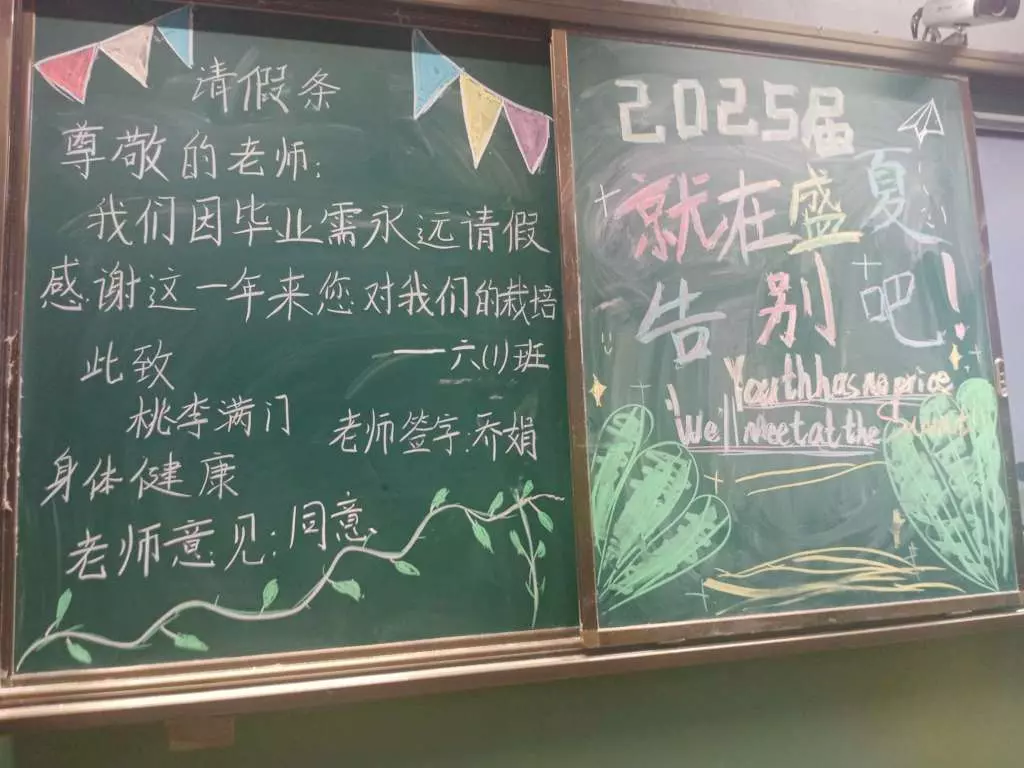 请假条
尊敬的老师:
我们因毕业需永远请假
感谢这一年来您对我们的栽培
——六(1)班
此致
桃李满门
身体健康
老师签字:乔娟
老师意见:同意
2025届
就在盛夏
告别吧!
Youth has no price
We'll meet at the